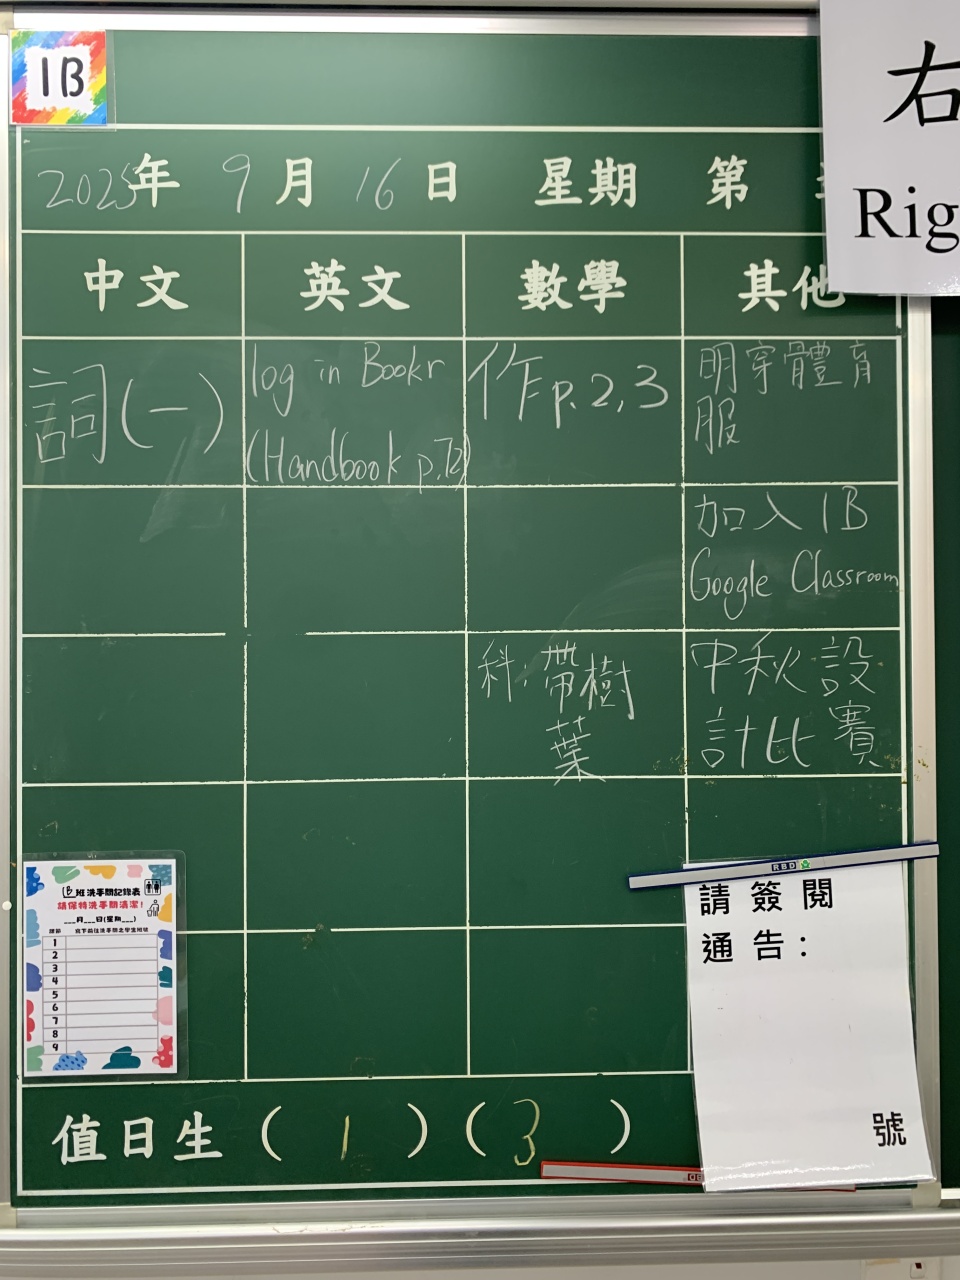 1B
右
Rig
2025年 9月 16日 星期 第
中文 英文 數學 其他
詞(一)
log in Bookr
(Handbook p.72)
作p.2,3
明穿體育
服
加入1B
Google Classroom
科:帶樹
葉
中秋設
計比賽
1B班洗手間記錄表
請保持洗手間清潔!
___月___日(星期___)
課節 寫下前往洗手間之學生班號
1
2
3
4
5
6
7
8
9
RBD
請簽閱
通告:
號
值日生 ( 1 ) ( 3 )